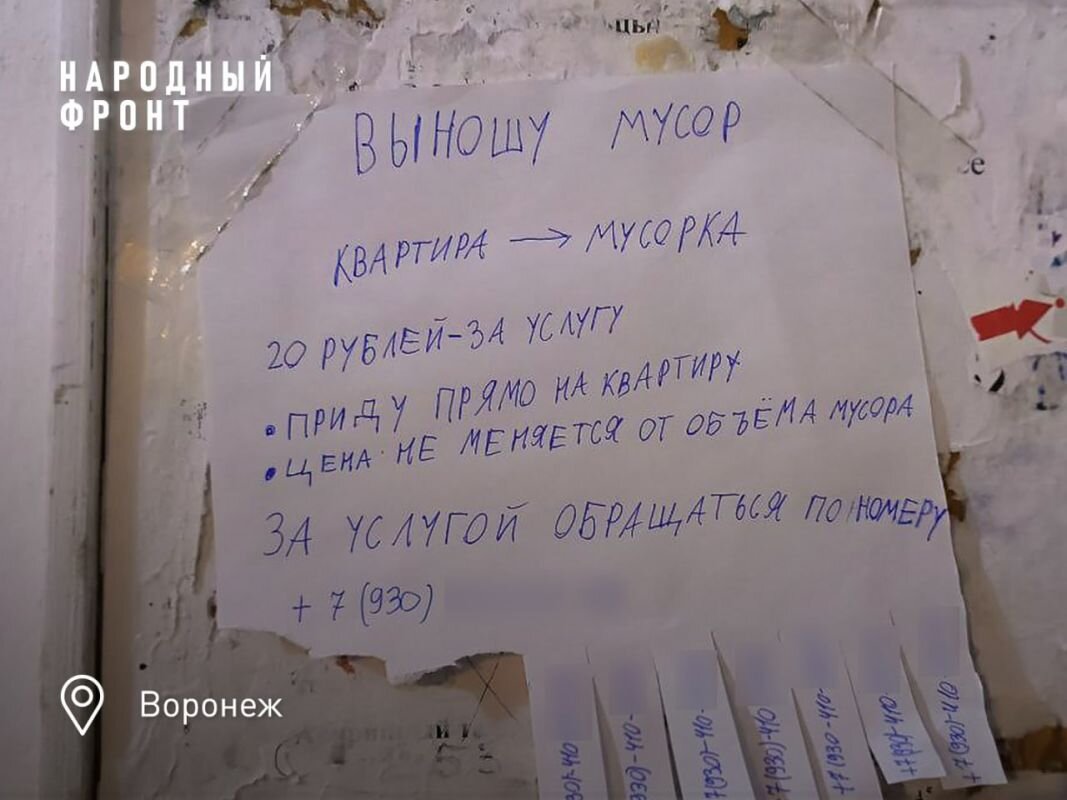 НАРОДНЫЙ
ФРОНТ
ЦЫ
се
ВЫНОШУ МУСОР
КВАРТИРА → МУСОРКА
20 РУБЛЕЙ-ЗА УСЛУГУ
• ПРИДУ ПРЯМО НА КВАРТИРУ
• ЦЕНА НЕ МЕНЯЕТСЯ ОТ ОБЪЁМА МУСОРА
ЗА УСЛУГОЙ ОБРАЩАТЬСЯ ПО НОМЕРУ
+ 7 (930)
30)-410
930)-410-
7(930)-410-
+7(930)-410
+7(930-410-
+7(930)-410-
+7(930)-410
Воронеж